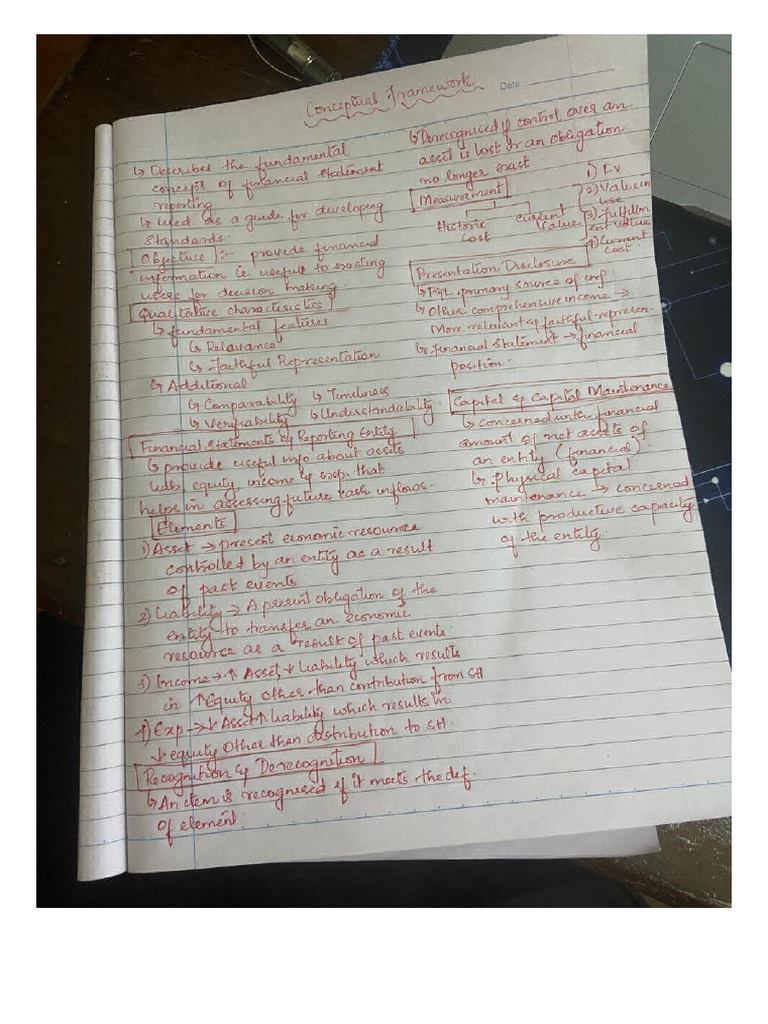 Conceptual Framework
Date :
↳ Describes the fundamental
concept of financial statement
reporting
↳ used as a guide for developing
standards.
Objective :- provide financial
information i.e. useful to existing
users for decision making.
Qualitative characteristics
↳ fundamental features
↳ Relevance
↳ Faithful Representation
↳ Additional
↳ Comparability ↳ Timeliness
↳ Verifiability ↳ Understandability.
Financial statements & Reporting Entity
↳ provide useful info about assets
liab. equity income & exp. that
helps in assessing future cash inflows.
Elements
1) Asset → present economic resource
controlled by an entity as a result
of past events
2) Liability → A present obligation of the
entity to transfer an economic
resource as a result of past events.
3) Income → ↑ Asset, ↓ liability which results
in ↑ Equity other than contribution from SH
4) Exp → ↓ Asset ↑ liability which results in
↓ equity other than distribution to SH.
Recognition & Derecognition
↳ An item is recognised if it meets the def.
of element.
↳ Derecognised if control over an
asset is lost or an obligation
no longer exist
Measurement
Historic cost
Current Value
1) FV
2) Value in use
3) Fulfillment value
4) Current cost
Presentation Disclosure
↳ P&L primary source of inf
↳ Other comprehensive income →
More relevant & faithful represen.
↳ financial statement → financial
position.
Capital & Capital Maintenance
↳ concerned with financial
amount of net assets of
an entity (financial)
↳ Physical capital
maintenance → concerned
with productive capacity
of the entity